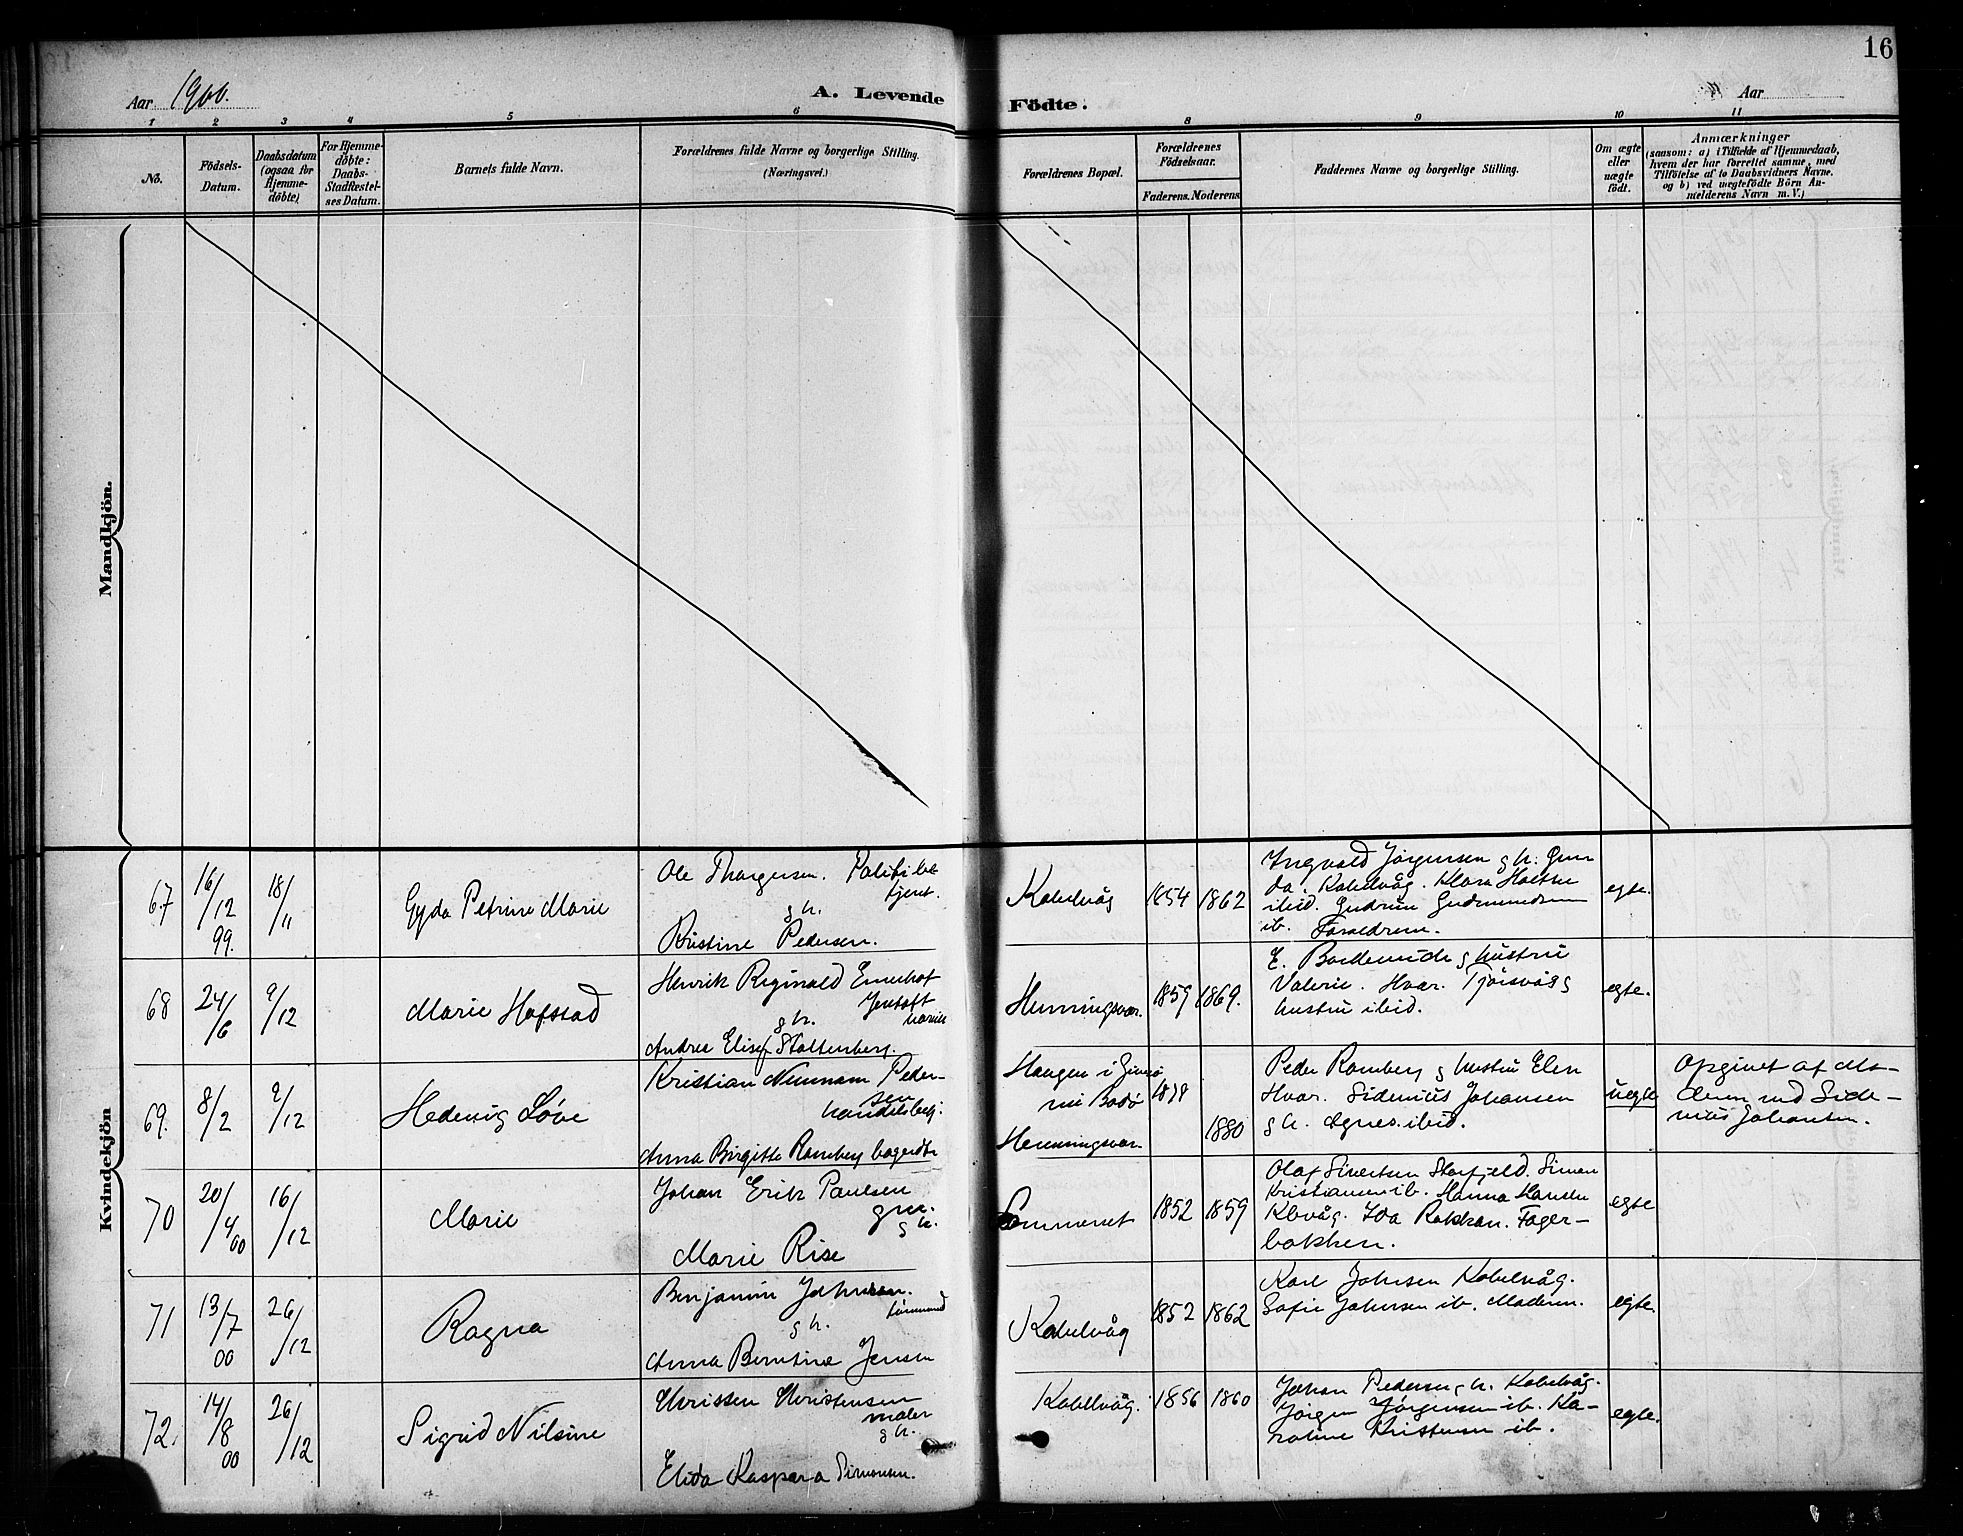 16
Aar 1900.
A. Levende Födte.
Aar
1 2 3 4 5 6 8 9 10 11
No.
Födsels-
Datum.
Daabsdatum
(ogsaa for
Hjemme-
döbte)
For Hjemme-
döbte:
Daabs-
Stadfæstel-
ses Datum.
Barnets fulde Navn.
Forældrenes fulde Navne og borgerlige Stilling.
(Næringsvei.)
Forældrenes Bopæl.
Forældrenes
Födselsaar.
Faderens. Moderens
Faddernes Navne og borgerlige Stilling.
Om ægte
eller
uægte
födt.
Anmærkninger
(saasom: a) i Tilfælde af Hjemmedaab,
hvem der har forrettet samme, med
Tilföielse af to Daabsvidners Navne.
og b) ved uægtefödte Börn An-
melderens Navn m. V.)
Mandkjön.
Kvindekjön
67
16/12
99.
18/11
Gyda Petrine Marie
Ole Thorgersen. Politibe
tjent.
g h.
Kristine Pedersen.
Kabelvåg
1854
1862
Ingvald Jørgensen g h. Gun
da. Kabelvåg. Klara Holthe
ibid. Gudrun Gudmundsen
ib. Forældrene.
egte.
68
24/6
9/12
Marie Hofstad
Henrik Reginald
g h.
Andrea Elisef Stoltenberg.
Henningsvær.
1859
1869.
hustru
Valerie. Hvær. Tjørsvåg g
hustru ibid.
egte.
69.
8/2
9/12
Hedevig Løve
Kristian Neumann Peder-
sen
handelsbetj.
Anna Birgitte Romberg
Haugen i
Bodø
1878
Henningsvær.
1880
Peder Romberg g hustru Elen
Hvær. Sidenius Johansen
g h. Agnes. ibid.
uegte
Opgivet af Mo-
deren ved Side-
nius Johansen.
70
20/4
00
16/12
Marie
Johan Erik Paulsen
g h.
Marie Rise
Sommerset
1852
1859
Olaf Sivertsen Storfjeld. Simon
Kristiansen ib. Hanna Hansen
Kbvåg. Ida Rokkan. Fager-
bakken.
egte
71
13/7
00
26/12
Ragna
Benjamin Johnsen.
tømmermd
g h.
Anna Berntine Jensen
Kabelvåg
1852
1862
Karl Johnsen Kabelvåg.
Sofie Johnsen ib. Moderen.
egte.
72.
14/8
00
26/12
Sigrid Nilsine
Christen Christensen
maler
g h.
Elida Kaspara Simonsen.
Kabelvåg.
1856
1860
Johan Pedersen g h. Kabelvåg.
Jørgen Jørgensen ib. Ka-
roline Kristensen ib.
egte.